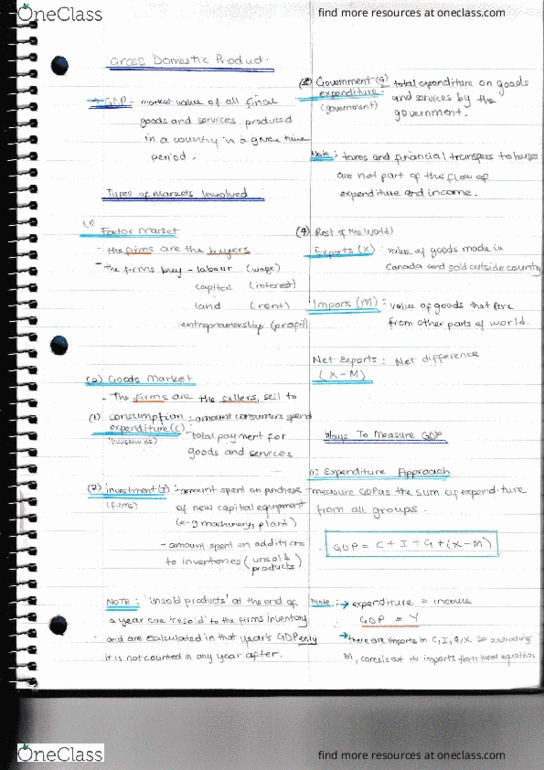 OneClass
find more resources at oneclass.com
Gross Domestic Product.
→ GDP : market value of all final
goods and services produced
in a country in a given time
period.
Types of Markets Involved
(1)
Factor market
- the firms are the buyers
- the firms buy - labour (wage)
capital (interest)
land (rent)
entrepreneurship (profit)
(2) Goods Market
- The firms are the sellers, sell to
(1) Consumption : amount consumers spend
expenditure (C)
(households)
- total payment for
goods and services
(2) Investment (I) - amount spent on purchase
(firms)
of new capital equipment
(e-g machinery, plant)
- amount spent on additions
to inventories (unsold products)
NOTE: 'unsold products' at the end of
a year are 'resold' to the firms inventory
and are calculated in that year's GDP only
it is not counted in any year after.
(3) Government (G) : total expenditure on goods
expenditure
(government)
and services by the
government.
Note : taxes and financial transfers to houses
are not part of the flow of
expenditure and income.
(4) Rest of the World)
Exports (X) : value of goods made in
Canada and sold outside country
Imports (M) : value of goods that are
from other parts of world.
Net Exports : Net difference
(X-M)
Ways To Measure GDP
(1) Expenditure Approach
measure GDP as the sum of expenditure
from all groups.
GDP = C + I + G + (X-M)
Note : → expenditure = income
GDP = Y
→ there are imports in C, I, G, X so
M, cancels out the imports from total equation
OneClass
find more resources at oneclass.com